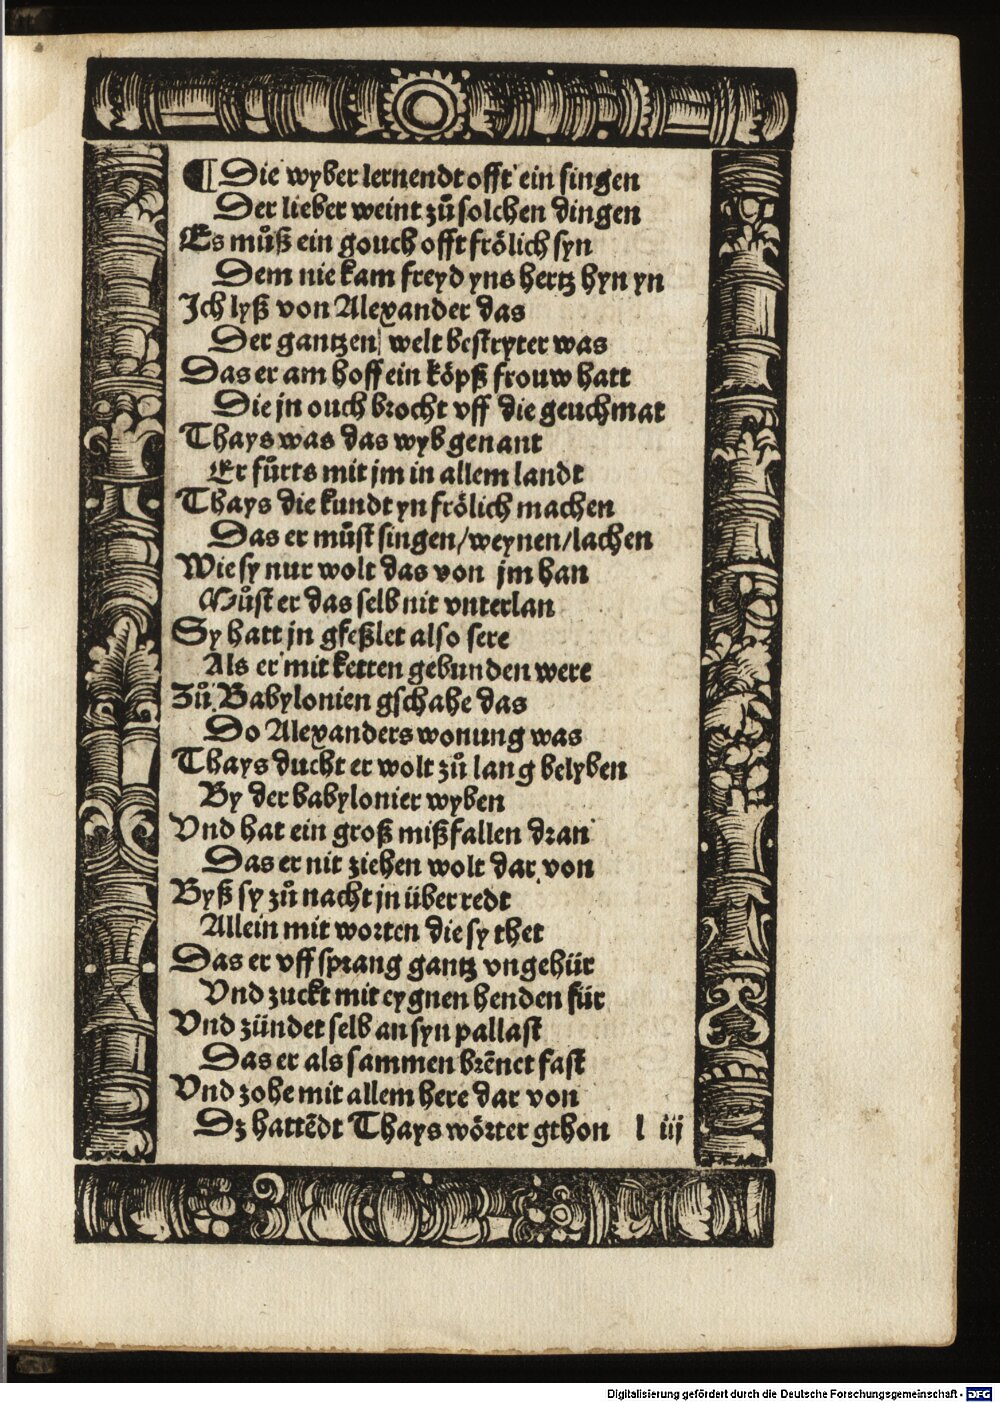 ¶ Die wyber lernendt offt ein singen
Der lieber weint zuͦ solchen dingen
Es muͦß ein gouch offt froͤlich syn
Dem nie kam freyd yns hertz hyn yn
Ich lyß von Alexander das
Der gantzen welt bestryter was
Das er am hoff ein koͤpß frouw hatt
Die jn ouch brocht vff die geuchmat
Thays was das wyb genant
Er fuͦrts mit jm in allem landt
Thays die kundt yn froͤlich machen
Das er muͦst singen/weynen/lachen
Wie sy nur wolt das von jm han
Muͦst er das selb nit vnterlan
Sy hatt jn gfeßlet also sere
Als er mit ketten gebunden were
Zuͦ Babylonien gschahe das
Do Alexanders wonung was
Thays ducht er wolt zuͦ lang belyben
By der babylonier wyben
Vnd hat ein groß mißfallen dran
Das er nit ziehen wolt dar von
Byß sy zuͦ nacht jn über redt
Allein mit worten die sy thet
Das er vff sprang gantz vngehür
Vnd zuckt mit eygnen henden für
Vnd zündet selb an syn pallast
Das er als sammen brēnet fast
Vnd zohe mit allem here dar von
Dz hattēdt Thays woͤrter gthon l iij
Digitalisierung gefördert durch die Deutsche Forschungsgemeinschaft - DFG